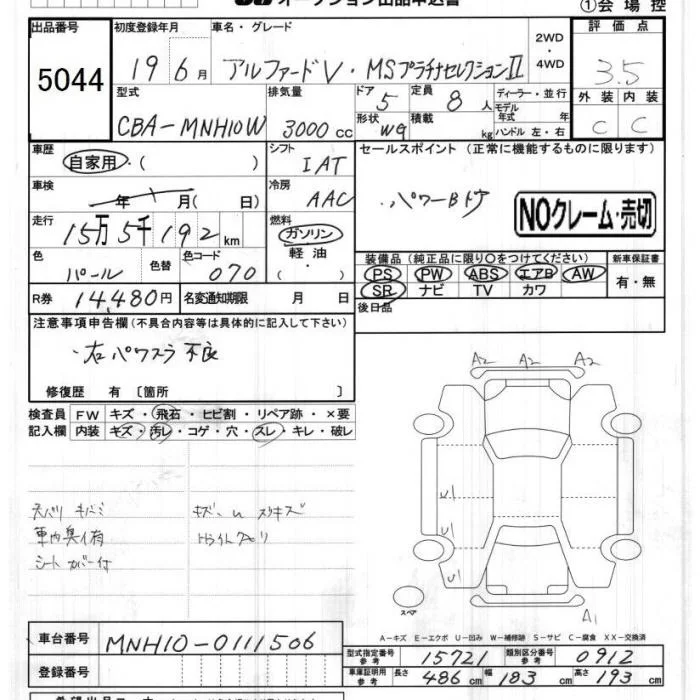 オークション出品申込書
①会場控
出品番号 初度登録年月 車名・グレード 2WD・4WD 評価点
5044 19 6月 アルファードV・MSプラチナセレクションⅡ 3.5
型式 排気量 ドア 5 定員 8人 ディーラー・並行 外装 内装
モデル年式 年
CBA-MNH10W 3000cc 形状 WG 積載 kg ハンドル 左・右 C C
車歴 シフト セールスポイント (正常に機能するものに限ります)
自家用・( ) IAT
車検 冷房
年 月( 日) AAC ・パワーBドア NOクレーム・売切
走行 燃料
15万5千192km ガソリン
色 色替 色コード 軽油 装備品 (純正品に限り○をつけてください) 新車保証書
パール 070 ・( ) PS PW ABS エアB AW 有・無
SR ナビ TV カワ
R券 14,480円 名変通知期限 月 日 後日品
注意事項申告欄(不具合内容等は具体的に記入して下さい)
・右パワスラ不良
修復歴 有 〔箇所 〕
A2 A2 A2
検査員 FW キズ・飛石・ヒビ割・リペア跡・×要
記入欄 内装 キズ・汚レ・コゲ・穴・スレ・キレ・破レ
U1
U1
U1
車内臭イ有
シートカバー付
スペア
A1
A-キズ E-エクボ U-凹み W-補修跡 S-サビ C-腐食 XX-交換済
車台番号 MNH10-0111506 型式指定番号 参考 15721 類別区分番号 参考 0912
登録番号 車庫証明用 参考 長さ 486cm 幅 183cm 高さ 193cm